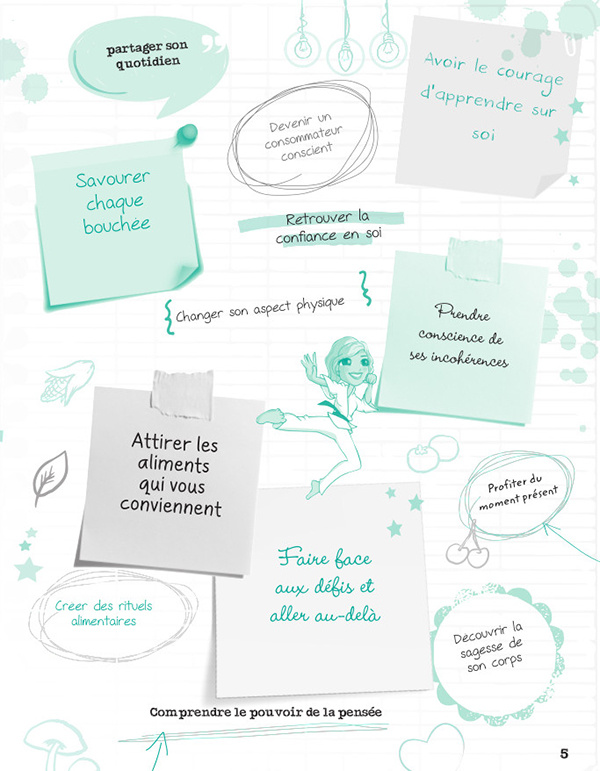 partager son
quotidien
Avoir le courage
d'apprendre sur
soi
Devenir un
consommateur
conscient
Savourer
chaque
bouchée
Retrouver la
confiance en soi
Changer son aspect physique
Prendre
conscience de
ses incohérences
Attirer les
aliments
qui vous
conviennent
Profiter du
moment présent
Faire face
aux défis et
aller au-delà
Creer des rituels
alimentaires
Découvrir la
sagesse de
son corps
Comprendre le pouvoir de la pensée
5